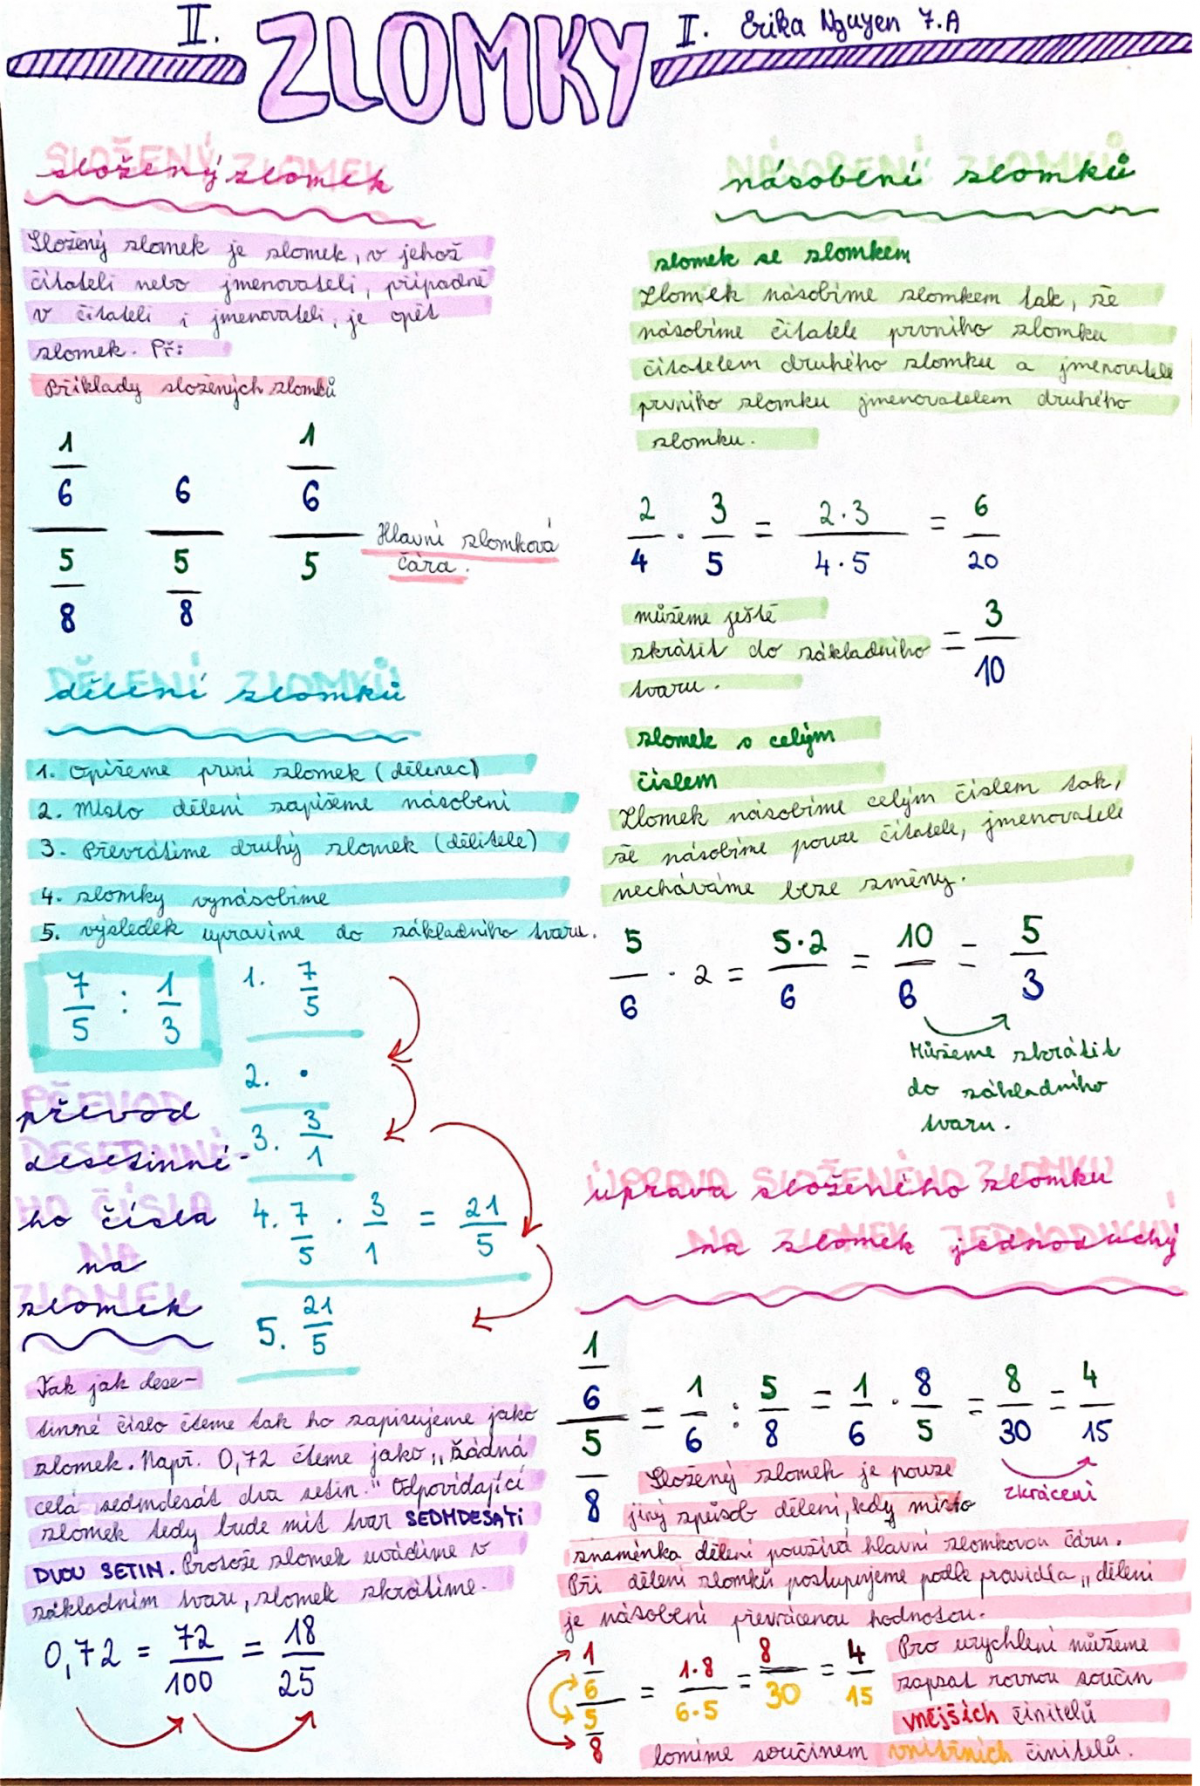 II. ZLOMKY I. Erika Nguyen 7.A
SLOŽENÝ ZLOMEK
složený zlomek
Složený zlomek je zlomek, v jehož
čitateli nebo jmenovateli, případně
v čitateli i jmenovateli, je opět
zlomek. Př:
Příklady složených zlomků
1 1
6 6 6
5 5 5
8 8
Hlavní zlomková
čára.
DĚLENÍ ZLOMKŮ
dělení zlomků
1. Opíšeme první zlomek (dělenec)
2. Místo dělení zapíšeme násobení
3. Převrátíme druhý zlomek (dělitele)
4. zlomky vynásobíme
5. výsledek upravíme do základního tvaru.
7/5 : 1/3
1. 7/5
2. ·
3. 3/1
4. 7/5 · 3/1 = 21/5
5. 21/5
PŘEVOD
převod
DESETINNÉ-
desetinné-
HO ČÍSLA
ho čísla
NA
na
ZLOMEK
zlomek
Tak jak dese-
tinné číslo čteme tak ho zapisujeme jako
zlomek. Např. 0,72 čteme jako „žádná
celá sedmdesát dva setin." Odpovídající
zlomek tedy bude mít tvar SEDMDESÁTI
DVOU SETIN. Protože zlomek uvádíme v
základním tvaru, zlomek zkrátíme.
0,72 = 72/100 = 18/25
NÁSOBENÍ ZLOMKŮ
násobení zlomků
zlomek se zlomkem
Zlomek násobíme zlomkem tak, že
násobíme čitatele prvního zlomku
čitatelem druhého zlomku a jmenovatele
prvního zlomku jmenovatelem druhého
zlomku.
2/4 · 3/5 = 2·3/4·5 = 6/20
můžeme ještě
zkrátit do základního
tvaru.
= 3/10
zlomek s celým
číslem
Zlomek násobíme celým číslem tak,
že násobíme pouze čitatele, jmenovatele
necháváme beze změny.
5/6 · 2 = 5·2/6 = 10/6 = 5/3
Můžeme zkrátit
do základního
tvaru.
ÚPRAVA SLOŽENÉHO ZLOMKU
úprava složeného zlomku
NA ZLOMEK JEDNODUCHÝ
na zlomek jednoduchý
1/6 / 5/8 = 1/6 : 5/8 = 1/6 · 8/5 = 8/30 = 4/15
zkrácení
Složený zlomek je pouze
jiný způsob dělení, kdy místo
znaménka dělení používá hlavní zlomkovou čáru.
Při dělení zlomků postupujeme podle pravidla „dělení
je násobení převrácenou hodnotou.
1/6 / 5/8 = 1·8/6·5 = 8/30 = 4/15
Pro urychlení můžeme
zapsat rovnou součin
vnějších činitelů
lomíme součinem vnitřních činitelů.